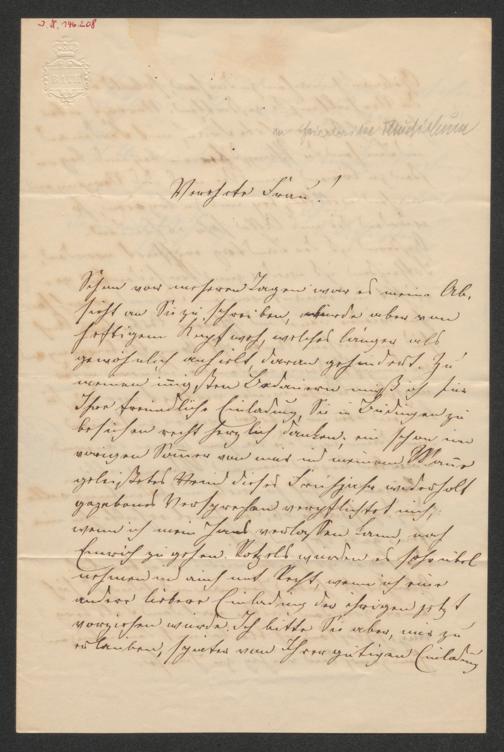 J. N. 196.208
BATH
Verehrte Frau!
Schon vor mehreren Tagen war es meine Ab-
sicht an Sie zu schreiben, wurde aber von
heftigem Kopfweh, welches länger als
gewöhnlich anhielt, daran gehindert. Zu
meinem innigsten Bedauern muß ich für
Ihre freundliche Einladung, Sie in Büdingen zu
besuchen recht herzlich danken; ein schon im
vorigen Somer von mir und meinem Manne
geleistetes und dieses Frühjahr wiederholt
gegebenes Versprechen verpflichtet mich,
wenn ich mein Haus verlassen kann, nach
zu gehen. würden es sehr übel
nehmen und auch mit Recht, wenn ich eine
andere liebere Einladung der ihrigen jetzt
vorziehen würde. Ich bitte Sie aber, mir zu
erlauben, später von Ihrer gütigen Einladung